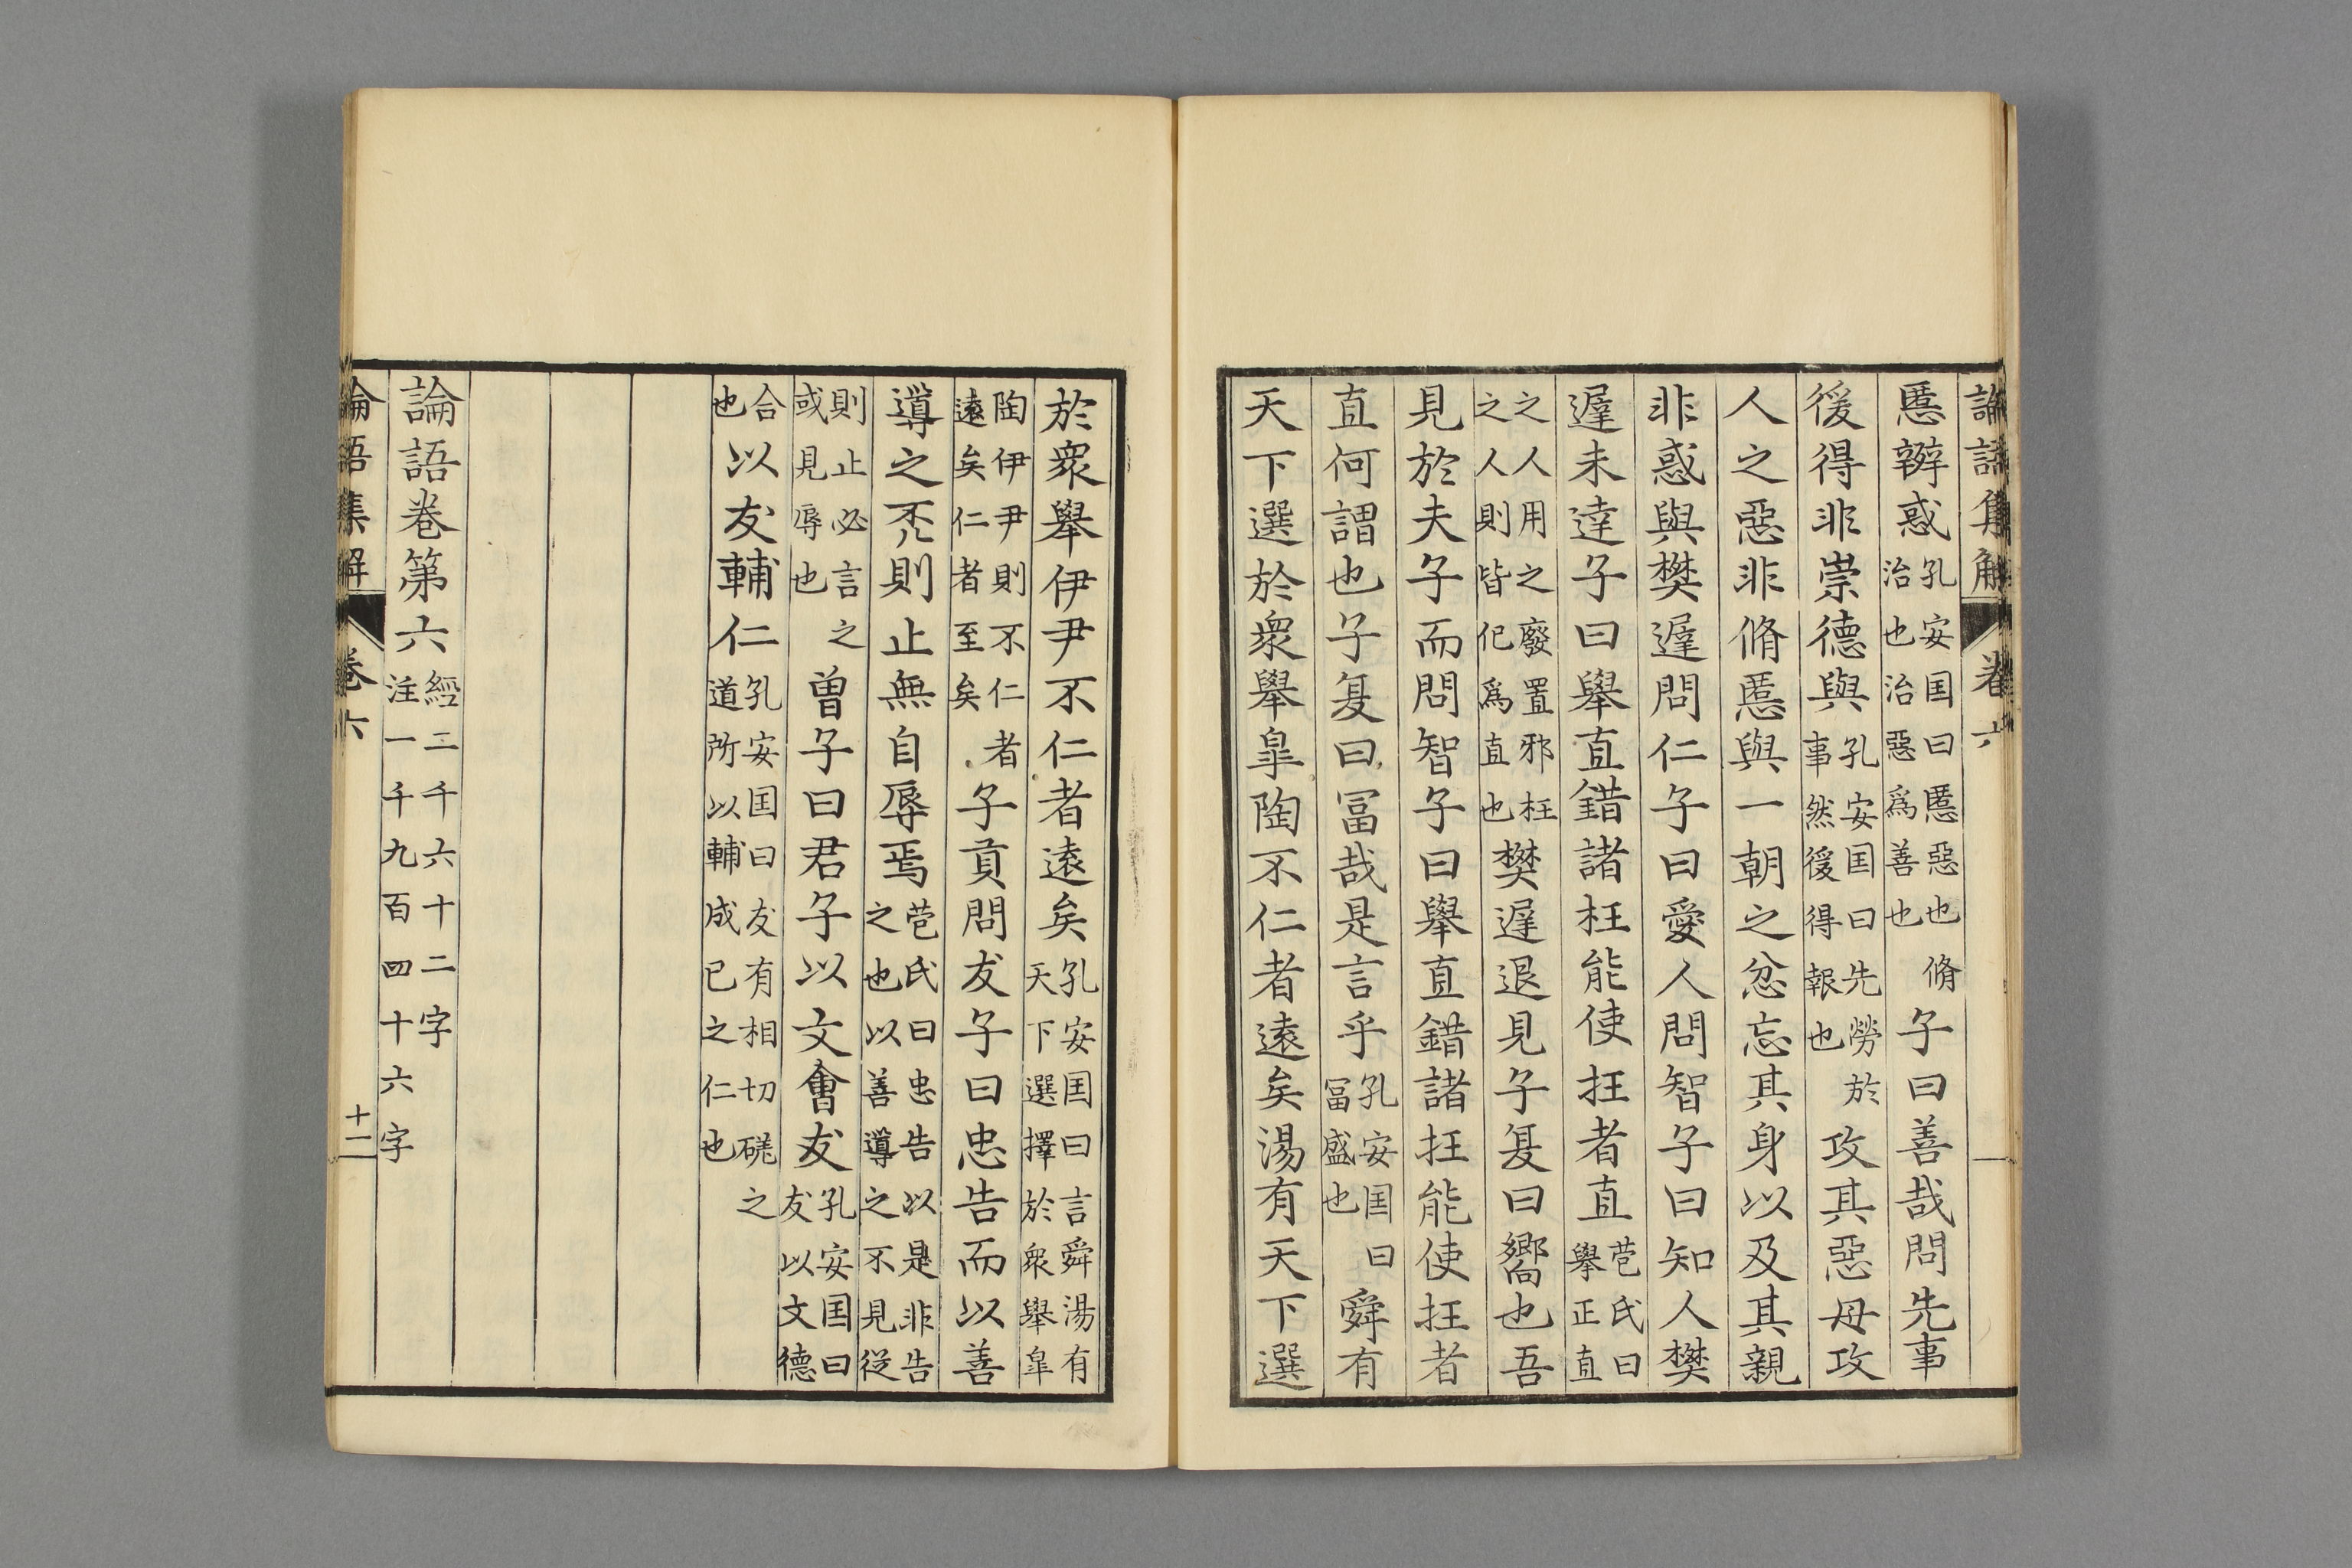 論語集解 卷六
慝辨惑孔安国曰慝惡也脩治也治惡爲善也子曰善哉問先事
後得非崇德與孔安国曰先勞於事然後得報也攻其惡毋攻
人之惡非脩慝與一朝之忿忘其身以及其親
非惑與樊遲問仁子曰愛人問智子曰知人樊
遲未達子曰舉直錯諸枉能使枉者直苞氏曰舉正直
之人用之廢置邪枉之人則皆化爲直也樊遲退見子夏曰嚮也吾
見於夫子而問智子曰舉直錯諸枉能使枉者
直何謂也子夏曰冨哉是言乎孔安国曰冨盛也舜有
天下選於衆舉皐陶不仁者遠矣湯有天下選
於衆舉伊尹不仁者遠矣孔安国曰言舜湯有天下選擇於衆舉皐
陶伊尹則不仁者遠矣仁者至矣子貢問友子曰忠告而以善
導之否則止無自辱焉苞氏曰忠告以是非告之也以善導之不見從
則止必言之或見辱也曽子曰君子以文會友孔安国曰友以文德
合也以友輔仁孔安国曰友有相切磋之道所以輔成己之仁也
論語卷第六經二千六十二字注一千九百四十六字
論語集解 卷六 十二